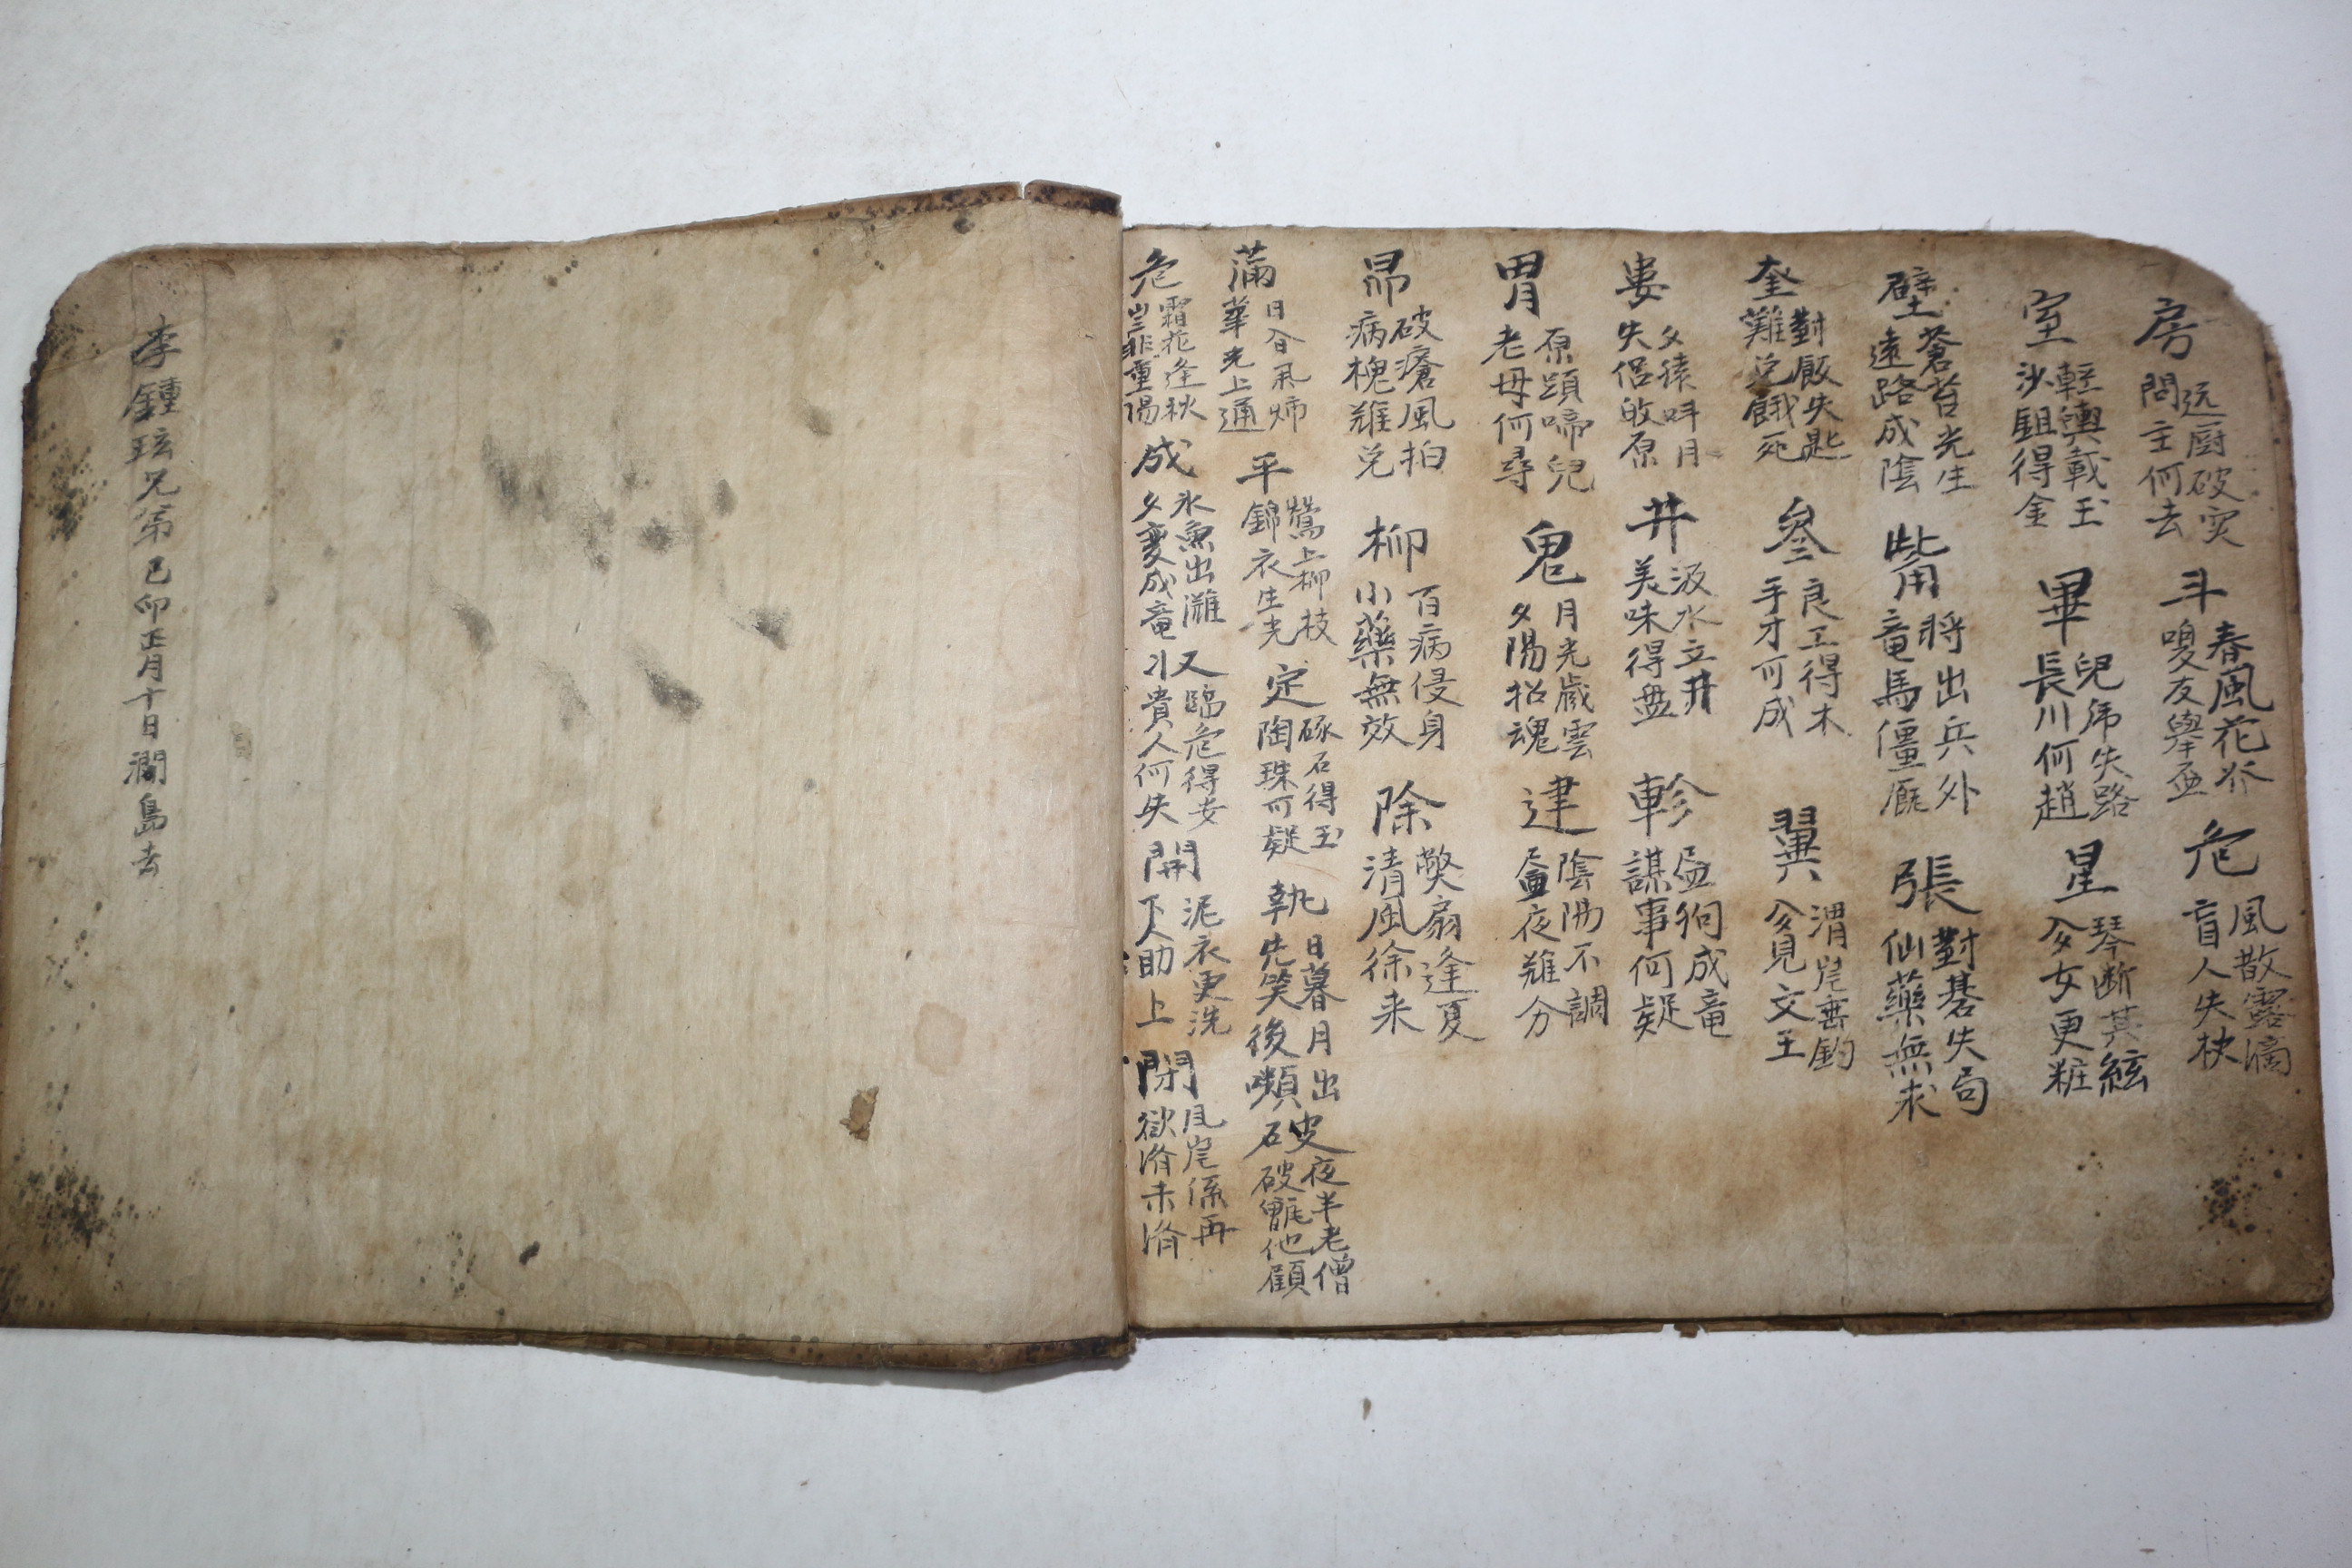 房 远厨破灾 問主何去 斗 春風花岕 嗅友擧盃 危 風散露滴 盲人失杖
室 軽輿載玉 沙鉏得金 畢 兒啼失路 長川何趙 星 琴断其絃 美女更粧
壁 蒼苔光生 遠路成陰 觜 將出兵外 竜馬僵厩 張 對碁失局 仙藥無求
奎 對飯失匙 難免餓死 參 良工得木 手才可成 翼 渭崖垂釣 見文王
婁 夕猿叫月 失侶故原 井 汲水立井 美味得盤 軫 狗成竜 謀事何疑
胃 原頭啼兒 老母何尋 鬼 月光戯雲 夕陽招魂 建 陰陽不調 夜難分
昴 破瘡風拍 病槐難免 柳 百病侵身 小藥無效 除 獘扇逢夏 清風徐来
滿 日合風 華光上通 平 鶯上柳枝 錦衣生光 定 琢石得玉 陶珠可疑 執 日暮月出 先笑後嚬 破 夜半老僧 破甑他顧
危 霜花逢秋 豈非重陽 成 氷魚出灘 夕変成竜 收 臨危得安 貴人何失 開 泥衣更洗 下人助上 閉 風崖係再 欲済未済
李鍾玹兄第 己卯正月十日 潤島去